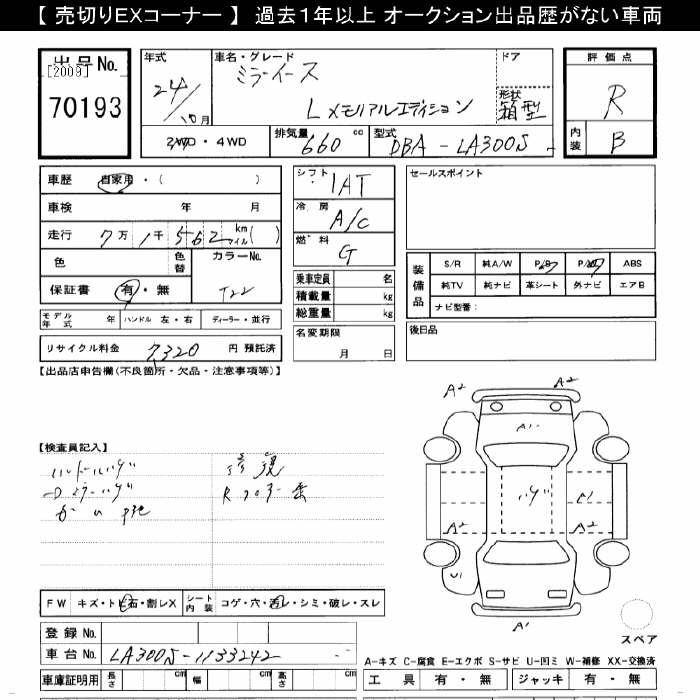 【 売切りEXコーナー 】 過去1年以上 オークション出品歴がない車両
出品No.
[2009]
70193
年式
24/10月
車名・グレード
ミラ イース
L メモリアルエディション
ドア
形状
箱型
評価点
R
内装
B
2WD・4WD
排気量 660 cc
型式 DBA - LA300S -
車歴 自家用・( )
車検 年 月
走行 7万 1千 562 km マイル ( )
色
色替
カラーNo.
T22
保証書 有・無
モデル年式 年 ハンドル 左・右 ディーラー・並行
リサイクル料金 7,320 円 預託済
シフト 1AT
冷房 A/C
燃料 G
乗車定員 名
積載量 kg
総重量 kg
名変期限
月 日
セールスポイント
装備品
S/R 純A/W P/S P/W ABS
純TV 純ナビ 革シート 外ナビ エアB
ナビ型番:
後日品
【出品店申告欄(不良箇所・欠品・注意事項等)】
【検査員記入】
ハンドルハゲ
修復
A2 A2
A1
ハゲ
A1
A2 A2
U1
A1
スペア
FW キズ・トビ石・割レX
シート内装 コゲ・穴・汚レ・シミ・破レ・スレ
登録No.
車台No. LA300S-1133242
車庫証明用 長さ cm 幅 cm 高さ cm
A-キズ C-腐食 E-エクボ S-サビ U-凹ミ W-補修 XX-交換済
工具 有・無 ジャッキ 有・無